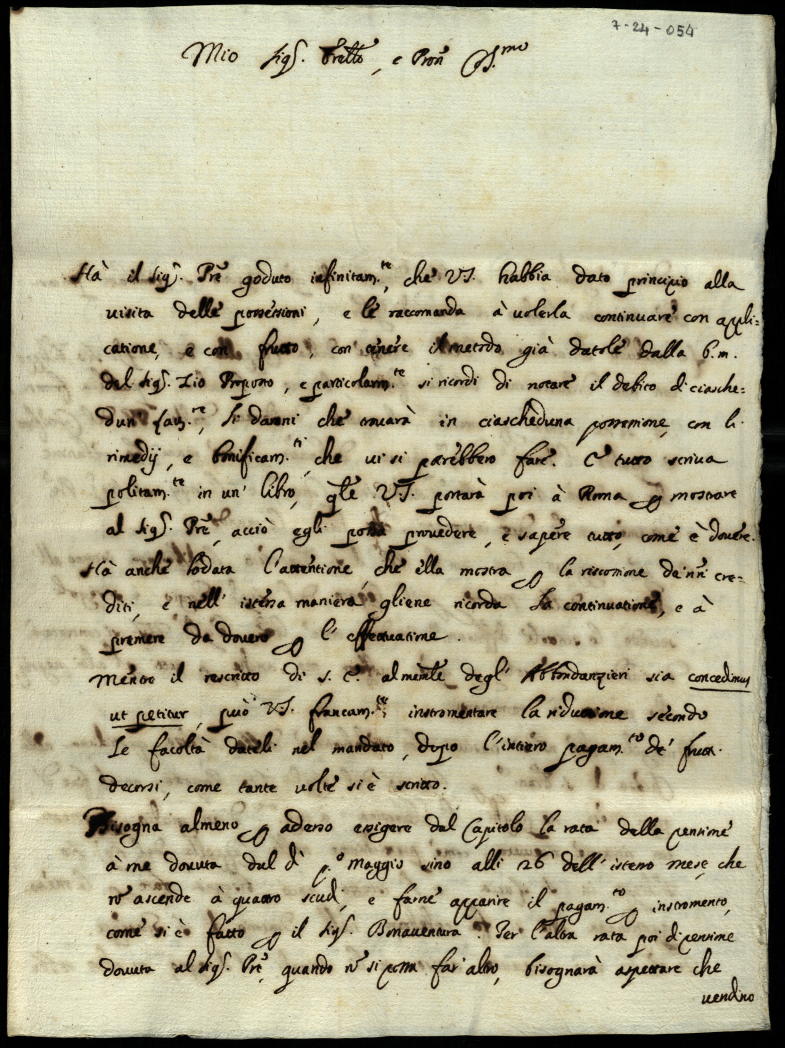 7-24-054
Mio Sig.r Fratto, e Pron
Hà il Sig.r Pre goduto infinitam.te, che VS. habbia dato principio alla
visita delle possessioni, e le raccomanda à volerla continuare con appli=
catione, e con frutto, con tenere il metodo già datole dalla b.m.
del Sig.r Zio Proposto, e particolarm.te si ricordi di notare il debito di ciasche=
dun, li danni che trovarà in ciascheduna possessione, con li
rimedij, e bonificam.ti, che vi si potrebbero fare. E tutto scriva
politam.te in un' libro, qle VS. portarà poi à Roma p mostrare
al Sig.r Pre, acciò egli possa provedere, e sapere tutto, come è dovere.
Hà anche lodata l'attentione, che ella mostra p la riscossione de' nri cre=
diti, e nell' istessa maniera gliene ricorda la continuatione, e à
premere da dovero p l'effettuatione.
Mentre il rescritto di S. C. al mente degl' Abbondanzieri sia concedimus
ut petitur, può VS. francam.te instromentare la riduttione secondo
le facoltà dateli nel mandato, dopo l'intiero pagam.to de' frutti
decorsi, come tante volte si è scritto.
Bisogna almeno p adesso esigere dal Capitolo la rata della pensione
à me dovuta dal dì p.o Maggio sino alli 26 dell' istesso mese, che
nō ascende à quattro scudi, e farne apparire il pagam.to p instromento,
come si è fatto p il Sig.r Bonaventura. Per l'altra rata poi di pensione
dovuta al Sig.r Pre, quando nō si possa far' altro, bisognarà aspettare che
vendino